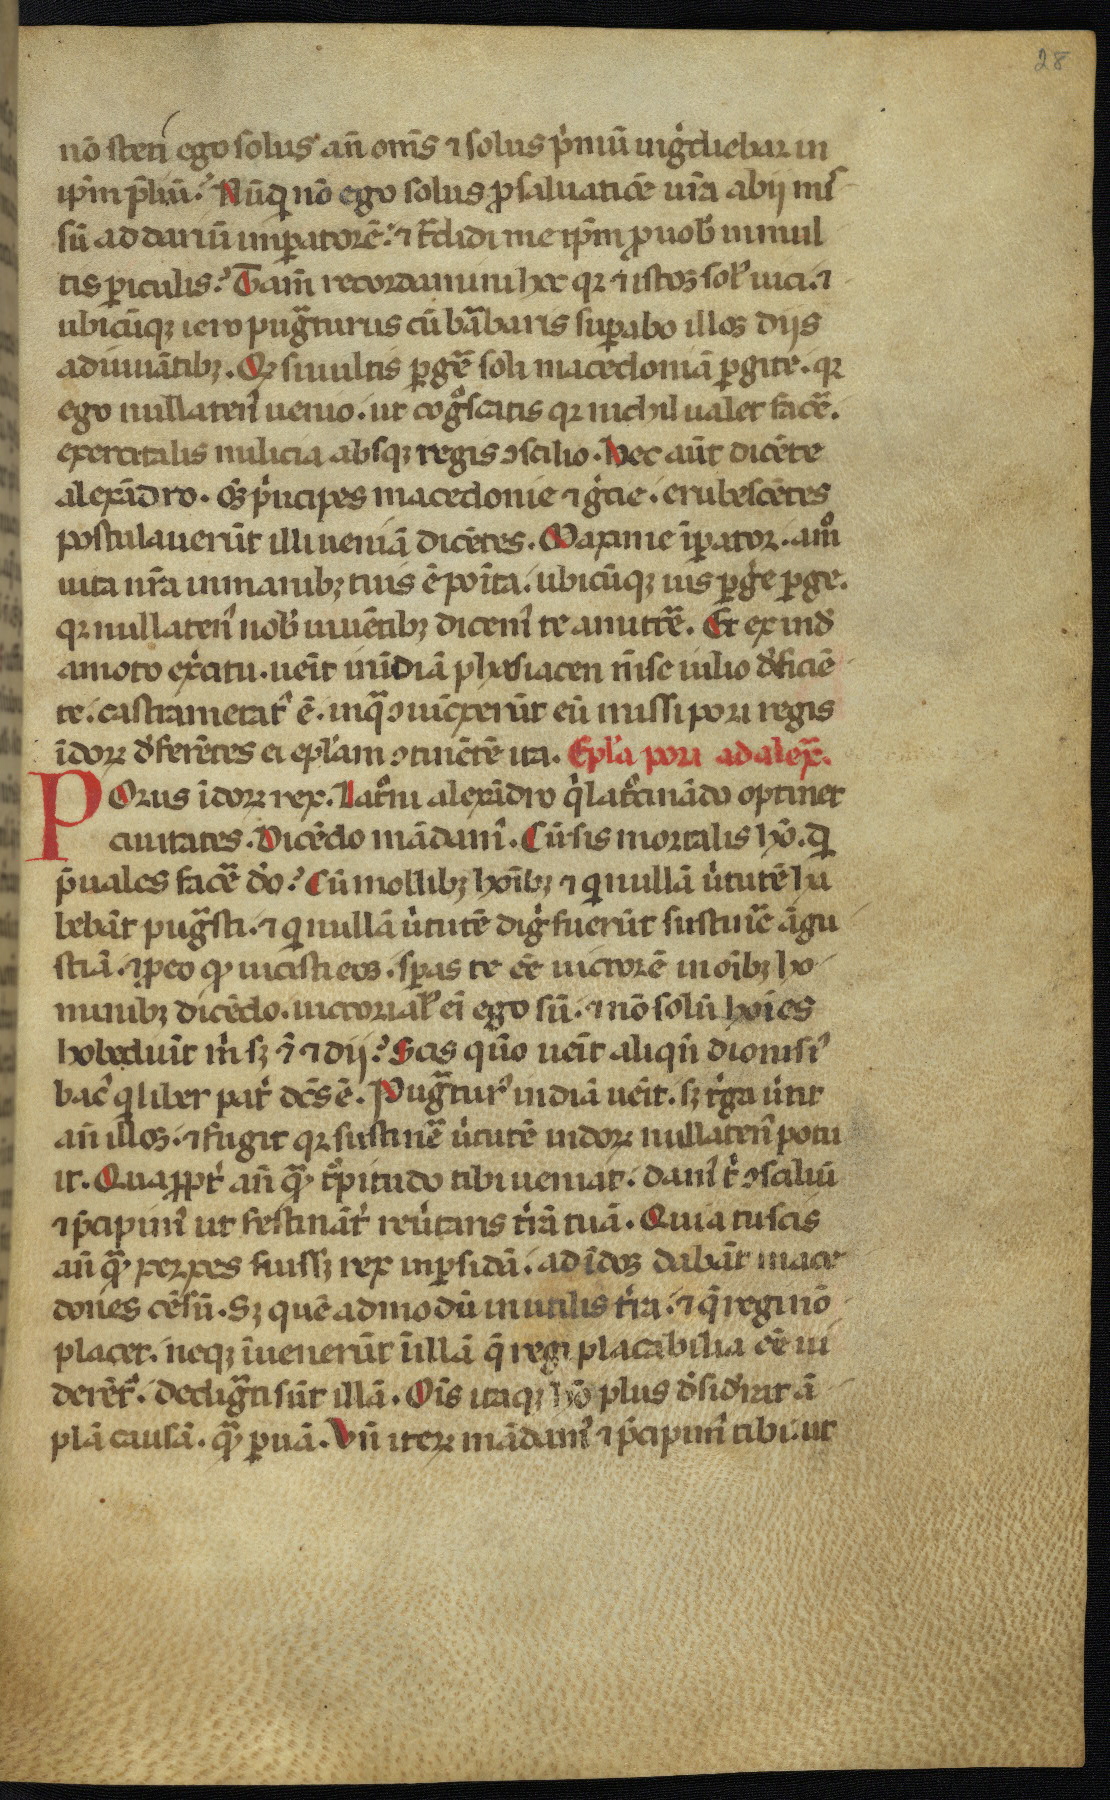 28
nō steti ego solus añ om̄s ⁊ solus p̓miū ingr̓diebar in
ip̄m p̄liū? Nūq̄ nō ego solus ꝓ saluatiōe vr̄a abii mis
sū ad dariū imꝑatorē? ⁊ tͣdidi me ip̄m ꝓ uob̓ in mul
tis ꝑiculis? Tam̄ recordamini hec qꝛ ⁊ istoꝫ sol̓ uici. ⁊
ubicūqꝫ iero pugͣturus cū baͣbaris suꝑabo illoꝫ diis
adiuuātibꝫ. Qꝫ si uultis ꝑgeͤ soli macedoniā ꝑgite. qꝛ
ego nullaten̓ uenio. ut cogͦscatis qꝛ nichil ualet faceͤ.
exercitalis milicia absqꝫ regis ɔsilio. Hec aūt dicēte
alexādro. Oēs p̓ncipes macedonie ⁊ gr̓cie. erubescētes
postulauerūt illi ueniā dicētes. Maxime īꝑator. amͦ
uita nr̄a in manibꝫ tuis ē poīta. ubicūqꝫ uis ꝑgͤe ꝑge.
qꝛ nullaten̓ nob̓ uiuētibꝫ dicem̓ te amitteͤ. Et exind̓
amoto ex̓citu. ueīt in īdiā phasiacen m̄se iulio d̓ficiē
te. castrametat̓ ē. inqͣ ɔuicxerūt eū missi pori regis
īdoꝝ d̓ferētes ei ep̄lam ɔtinētē ita. Ep̄la pori ad alexͣ.
POrus īdoꝝ rex. Latͦni alexādro q̓ latͦcinādo optinet
ciuitates. Dicēdo mādam̓. Cū sis mortalis hō. q̄
p̄uales faceͤ d̓o? Cū mollibꝫ hoībꝫ ⁊ q̄ nullā u̓tutē ha
bebāt pugͣsti. ⁊ q̄ nullā u̓tutē dig̓ fuerūt sustineͤ āgu
stiā. ⁊ ꝓ eo qꝫ uicisti eos. sꝑas te eē uictorē in oībꝫ ho
minibꝫ dicēdo. uictorial̓ ei ego sū. ⁊ nō solū hoīes
hobediūt m̓ sꝫ ⁊ ⁊ dii? Scis qn̄o ueīt aliqn̄ dionisi̓
bac̓ q̄ liber pat̓ dc̄s ē. Pugͣtur̓ in diā ueīt. sꝫ t̓ga u̓tit
añ illoꝫ. ⁊ fugit qꝛ sustineͤ u̓tutē indoꝝ nullaten̓ potu
it. Quapp̓t añ qꝫ t̓pitudo tibi ueniat. dam̓ t̓ ɔsiliū
⁊ p̄cipim̓ ut festināt̓ reu̓taris tr̄ā tuā. Quia tu scis
añ qꝫ xerxes fuissꝫ rex in ꝑsidā. ad īdoꝫ dabāt mace
dones cēsū. Sꝫ quē admodū inutilis tr̄a. ⁊ q̄ regi nō
placet. neqꝫ īuenerūt ī illā q̄ regi placabilia eē ui
derēt̓. dedigͣti sūt illā. Oīs itaqꝫ hō plus d̓sid̓rat ā
plā causā. qꝫ ꝑuā. Vn̄ iteꝝ mādam̓ ⁊ p̄cipim̓ tibi. ut